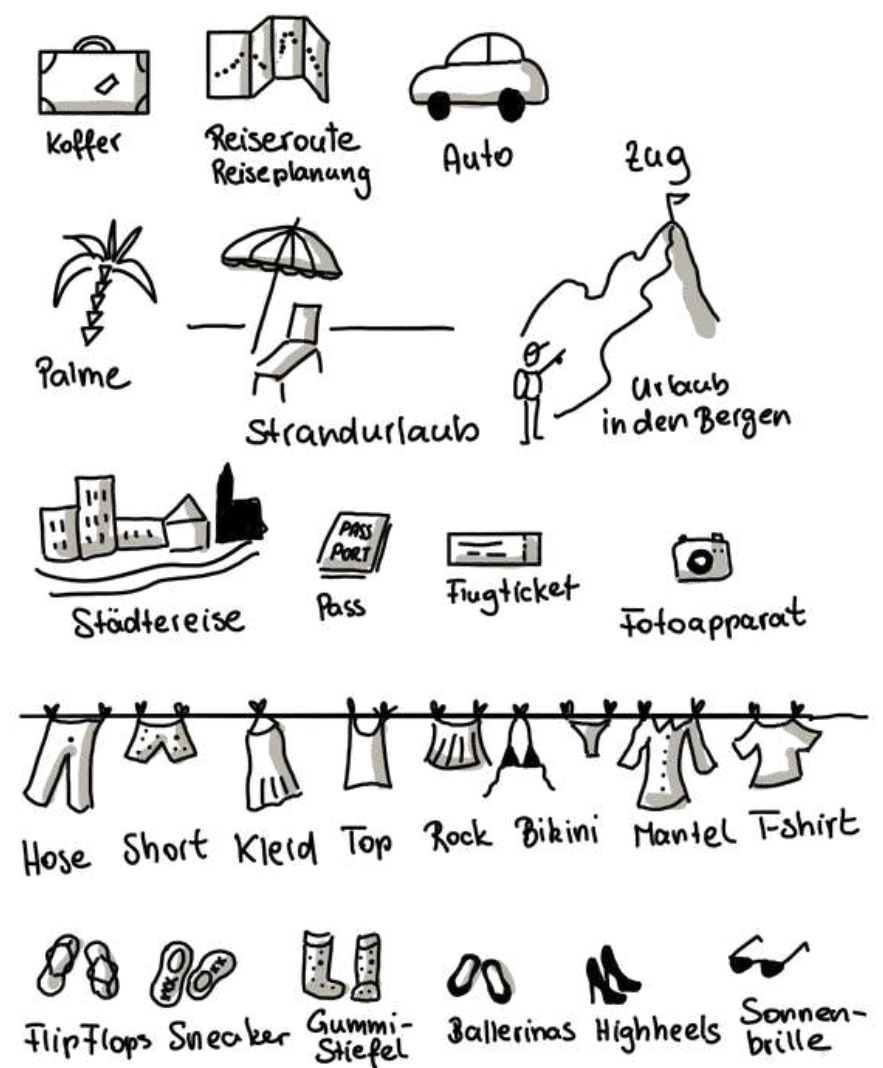 Koffer
Reiseroute
Reiseplanung
Auto
Zug
Palme
Strandurlaub
Urlaub
in den Bergen
Städtereise
PASS
PORT
Pass
Flugticket
Fotoapparat
Hose Short Kleid Top Rock Bikini Mantel T-Shirt
FlipFlops Sneaker Gummi-
Stiefel
Ballerinas Highheels Sonnen-
brille